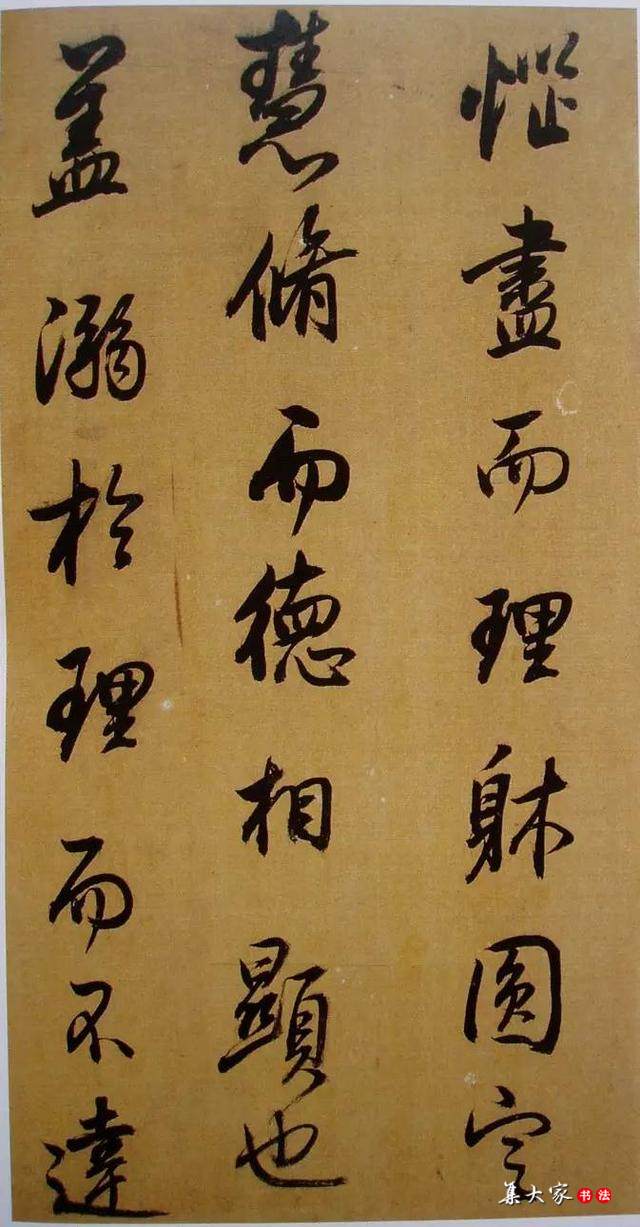 惱盡而理躰圓定
慧脩而德相顯也
盖溺於理而不達
集大家书法